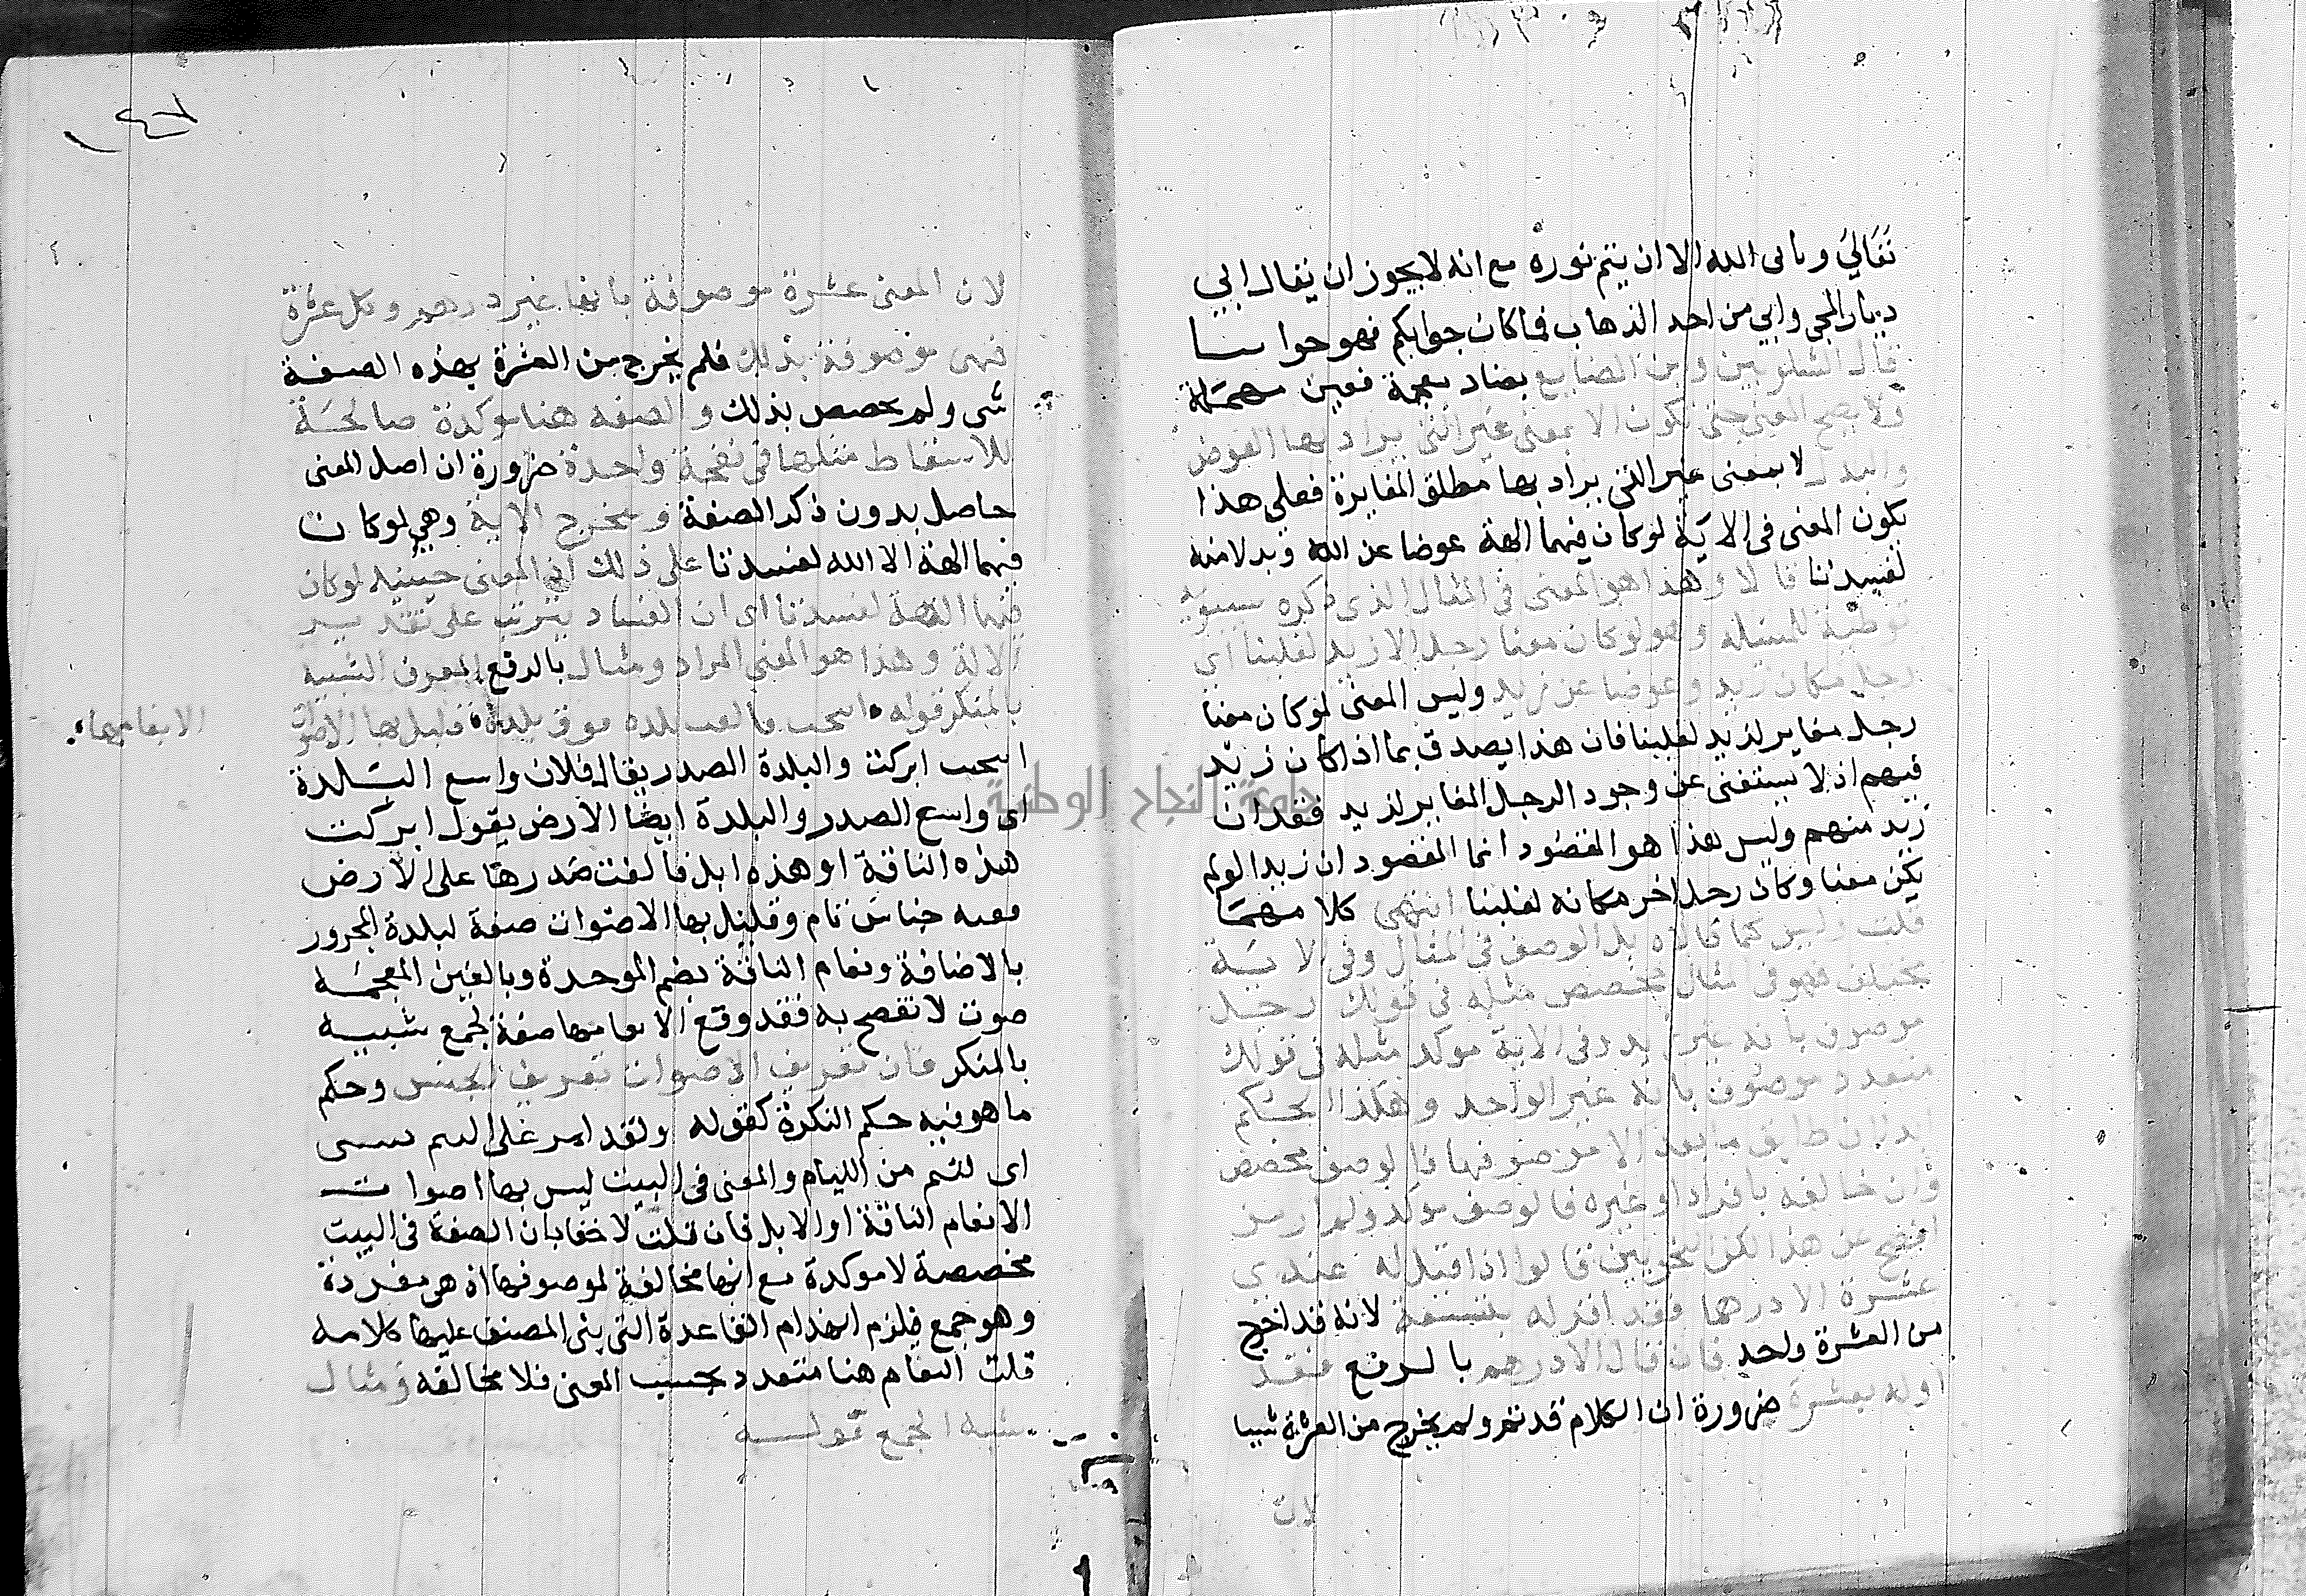 تعالى ويابى الله الا ان يتم نوره مع انه لا يجوز ان يقال ابي
دينار المجي وابي من احد الذهاب فما كان جوابكم فهو جوابنا
قال الشلوبين وابن الضايع بضاد معجمة فعين مهملة
ولا يصح المعنى حتى تكون الا بمعنى غير التي يراد بها العوض
والبدل لا بمعنى غير التي يراد بها مطلق المغايرة فعلى هذا
يكون المعنى في الاية لو كان فيهما الهة عوضا عن الله وبدلا منه
لفسدتا قالا وهذا هو المعنى في المثال الذي ذكره سيبويه
توطئة للمسئله وهو لو كان معنا رجل الا زيد لغلبنا اي
رجل مكان زيد وعوضا عن زيد وليس المعنى لو كان معنا
رجل مغاير لزيد لغلبنا فان هذا يصدق بما اذا كان زيد
فيهم اذ لا يستغنى عن وجود الرجل المغاير لزيد فقدان
زيد منهم وليس هذا هو المقصود انما المقصود ان زيدا لو لم
يكن معنا وكان رجل اخر مكانه لغلبنا انتهى كلامهما
قلت وليس كما قالاه بل الوصف في المثال وفي الاية
مختلف فهو في مثال مخصص مثله في قولك رجل
موصوف بانه غير زيد وفي الاية موكد مثله في قولك
متعدد موصوف بانه غير الواحد وهكذا الحكم
ابدا ان طابق ما بعد الا موصوفها فالوصف مخصص
وان خالفه بافراد او غيره فالوصف موكد ولم ار من
افصح عن هذا لكن النحويين قالوا اذا قيل له عندي
عشرة الا درهما فقد اقر له بتسعة لانه قد اخرج
من العشرة واحد فان قال الا درهم بالرفع فقد
اقر له بعشرة ضرورة ان الكلام قد تم ولم يخرج من العشرة شيا
لان
لان المعنى عشرة موصوفة بانها غير درهم وكل عشرة
فهى موصوفة بذلك فلم يخرج من العشرة بهذه الصفة
شى ولم تخصص بذلك والصفه هنا موكدة صالحة
للاسقاط مثلها في نفخة واحدة ضرورة ان اصل المعنى
حاصل بدون ذكر الصفة وتخرج الاية وهي لو كان
فيهما الهة الا الله لفسدتا على ذلك اذ المعنى حينيد لو كان
فيهما الهة لفسدتا اى ان الفساد يترتب على تقدير
الالة وهذا هو المعنى المراد ومثال بالرفع المعرف الشبيه
بالمنكر قوله انيخت فالقت بلدة فوق بلدة قليل بها الاصوات
الا بغامها
انيخت ابركت والبلدة الصدر يقال فلان واسع البلدة
اى واسع الصدر والبلدة ايضا الارض يقول ابركت
هذه الناقة او هذه ابل فالقت صدرها على الارض
ففيه جناس تام وقليل بها الاصوات صفة لبلدة المجرور
بالاضافة وبغام الناقة بضم الموحدة وبالغين المعجمه
صوت لا تفصح به فقد وقع الا بغامها صفة لجمع شبيه
بالمنكر فان تعريف الاصوات تعريف الجنس وحكم
ما هو فيه حكم النكرة كقوله ولقد امر على اللئيم يسبني
اى لئيم من الليام والمعنى في البيت ليس بها اصوات
الا بغام الناقة او الابل فان قلت لا خفا بان الصفة في البيت
مخصصة لا موكدة مع انها مخالفة لموصوفها اذ هى مفردة
وهو جمع فلزم انهدام القاعدة التي بنى المصنف عليها كلامه
قلت البغام هنا متعدد بحسب المعنى فلا مخالفه ومثال
شبه الجمع قوله
جامعة النجاح الوطنية